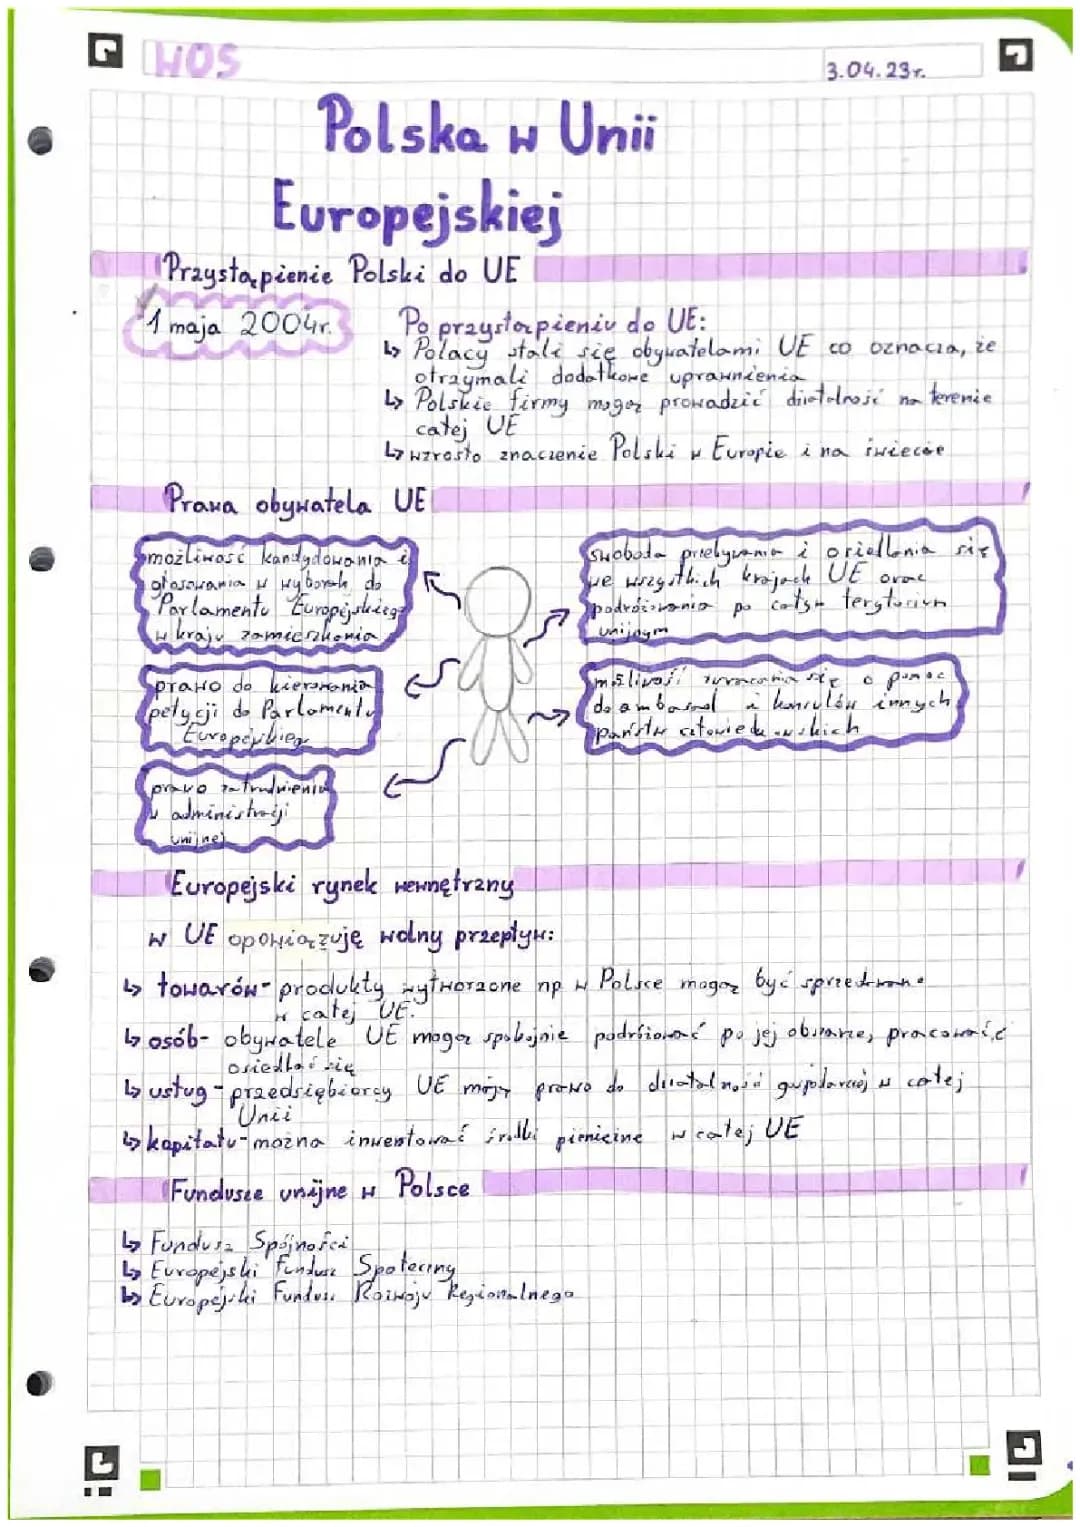 WOS
3.04.23r.
Polska w Unii
Europejskiej
Przystąpienie Polski do UE
1 maja 2004r.
Po przystąpieniu do UE:
↳ Polacy stali się obywatelami UE co oznacza, że
otrzymali dodatkowe uprawnienia
↳ Polskie firmy mogą prowadzić działalność na terenie
całej UE
↳ wzrosło znaczenie Polski w Europie i na świecie
Prawa obywatela UE
możliwość kandydowania i
głosowania w wyborach do
Parlamentu Europejskiego
w kraju zamieszkania
swoboda przebywania i osiedlania się
we wszystkich krajach UE oraz
podróżowania po całym terytorium
unijnym
prawo do kierowania
petycji do Parlamentu
Europejskiego
możliwość zwracania się o pomoc
do ambasad i konsulów innych
państw członkowskich
prawo zatrudnienia
w administracji
unijnej
Europejski rynek wewnętrzny
w UE opowiązuję wolny przepływ:
↳ towarów- produkty wytworzone np w Polsce mogą być sprzedawane
w całej UE.
↳ osób- obywatele UE mogą spokojnie podróżować po jej obszarze, pracować,
osiedlać się
↳ usług- przedsiębiorcy UE mają prawo do działalności gospodarczej w całej
Unii
↳ kapitału- można inwestować środki pieniężne w całej UE
Fundusze unijne w Polsce
↳ Fundusz Spójności
↳ Europejski Fundusz Społeczny
↳ Europejski Fundusz Rozwoju Regionalnego